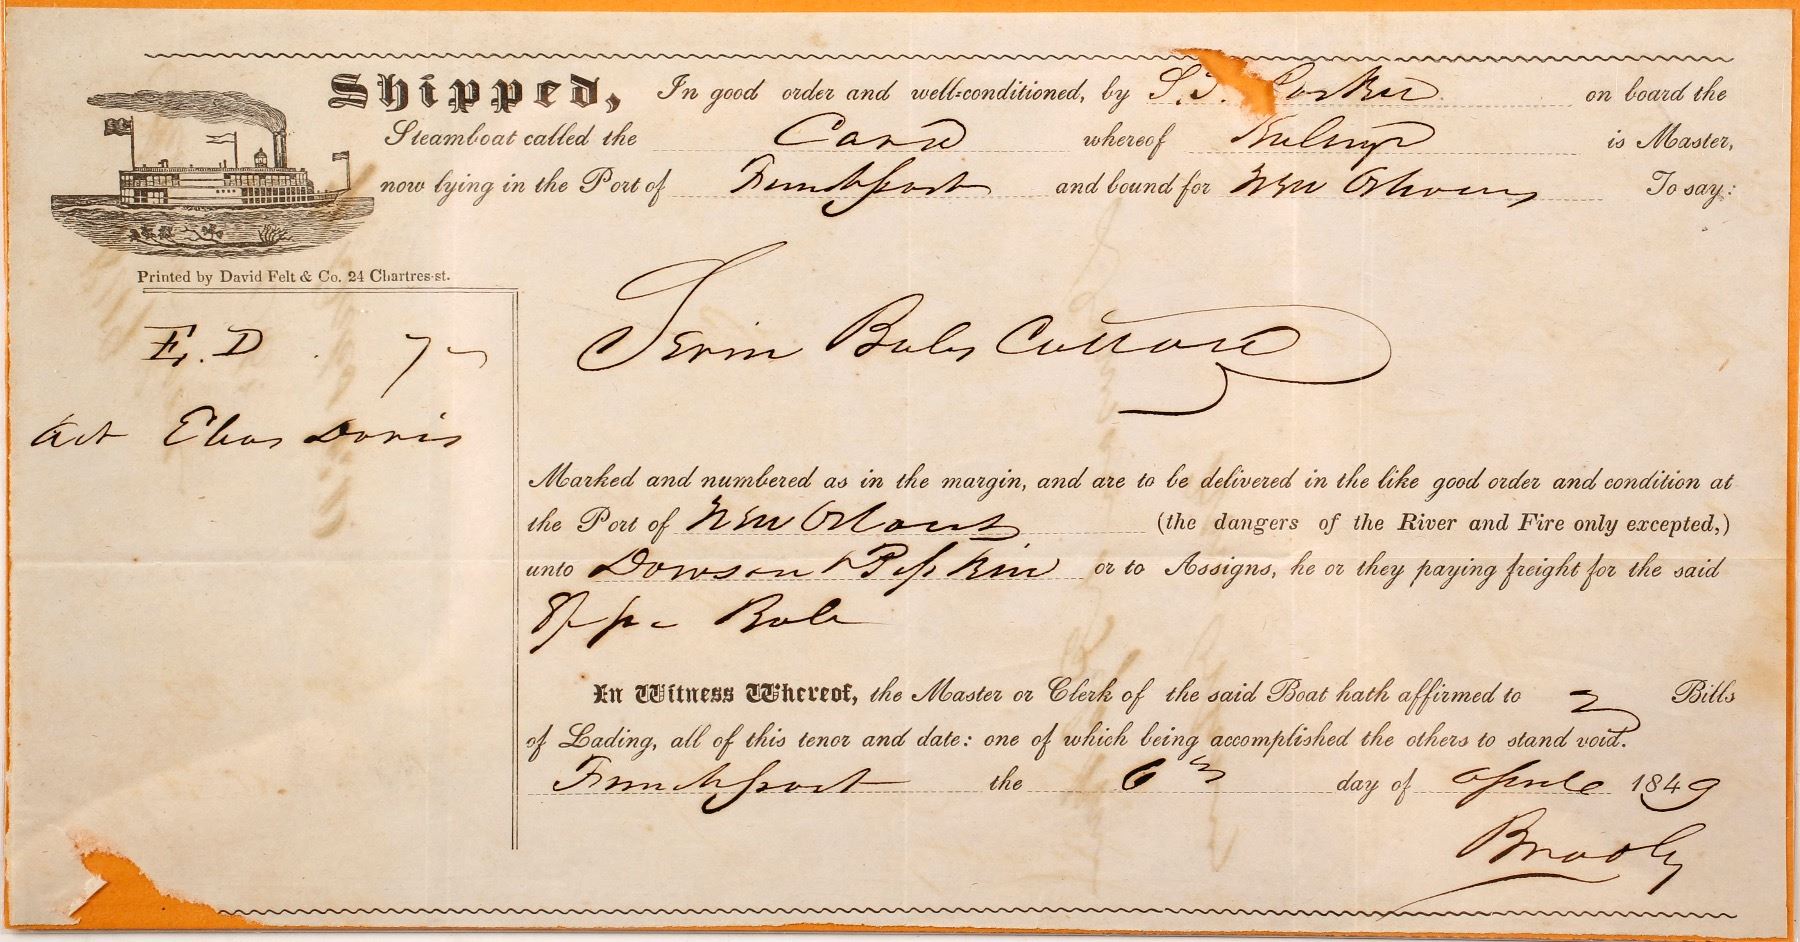 Shipped, In good order and well-conditioned, by S. T. Parker on board the
Steamboat called the whereof is Master,
now lying in the Port of Frenchport and bound for New Orleans To say:
Printed by David Felt & Co. 24 Chartres-st.
E. D 7
Seven Bales Cotton
Act Elias Davis
Marked and numbered as in the margin, and are to be delivered in the like good order and condition at
the Port of New Orleans (the dangers of the River and Fire only excepted,)
unto Dowson & Pipkin or to Assigns, he or they paying freight for the said
Bale
In Witness Whereof, the Master or Clerk of the said Boat hath affirmed to Bills
of Lading, all of this tenor and date: one of which being accomplished the others to stand void.
Frenchport the 6th day of Aprile 1849